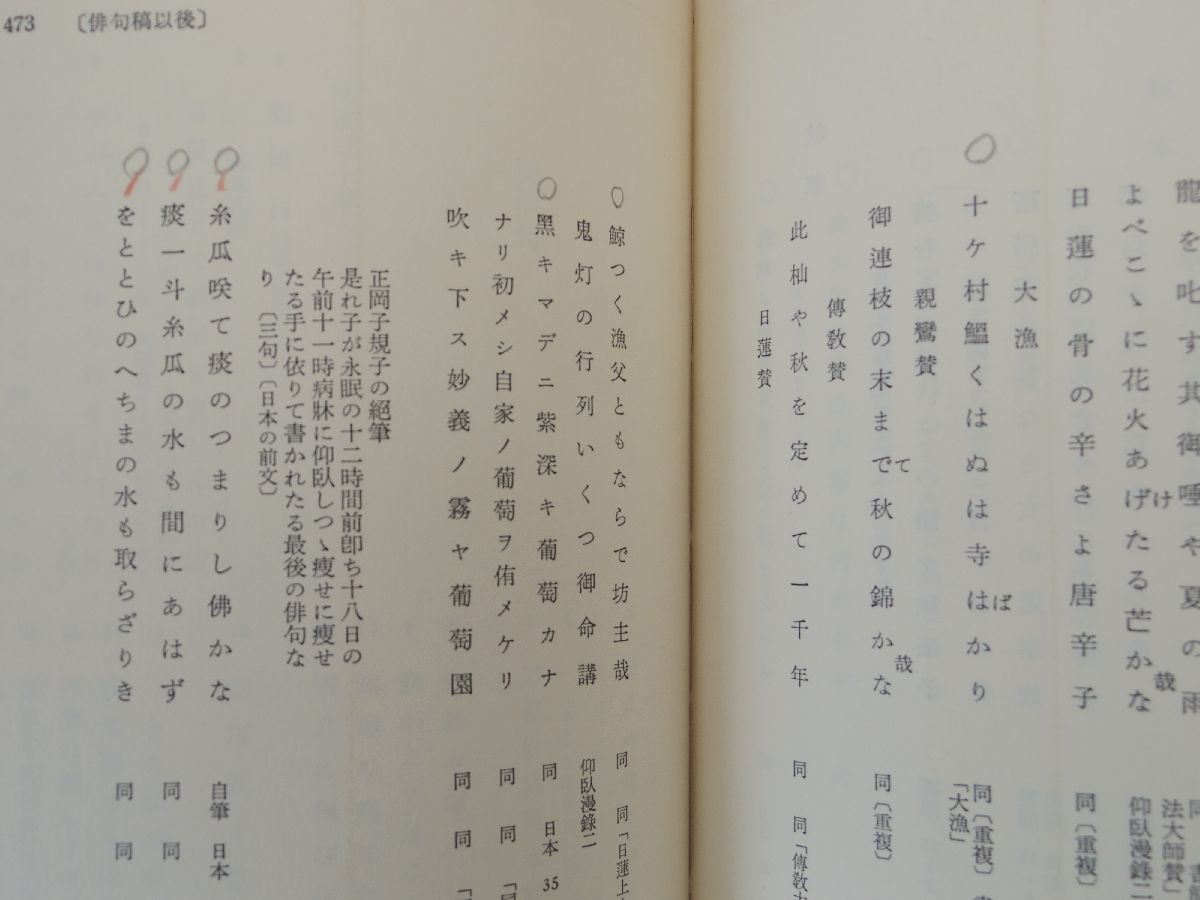 龍を叱す其御唾や夏の雨
よべこゝに花火あげたる芒かな
け
哉
仰臥漫錄二
法大師賛」
日蓮の骨の辛さよ唐辛子
同〔重複〕
大漁
十ケ村鰮くはぬは寺はかり
ば
同〔重複〕
「大漁」
親鸞賛
御連枝の末まで秋の錦かな
て
哉
同〔重複〕
傳敎賛
此杣や秋を定めて一千年
同 同「傳敎大
日蓮賛
鯨つく漁父ともならで坊主哉
同 同「日蓮上
鬼灯の行列いくつ御命講
仰臥漫錄二
黑キマデニ紫深キ葡萄カナ
同 日本 35
ナリ初メシ自家ノ葡萄ヲ侑メケリ
同 同 「同
吹キ下ス妙義ノ霧ヤ葡萄園
同 同 「
正岡子規子の絕筆
是れ子が永眠の十二時間前卽ち十八日の
午前十一時病牀に仰臥しつゝ瘦せに瘦せ
たる手に依りて書かれたる最後の俳句な
り 〔三句〕〔日本の前文〕
糸瓜咲て痰のつまりし佛かな
自筆 日本
痰一斗糸瓜の水も間にあはず
同 同
をとゝひのへちまの水も取らざりき
同 同
473 〔俳句稿以後〕